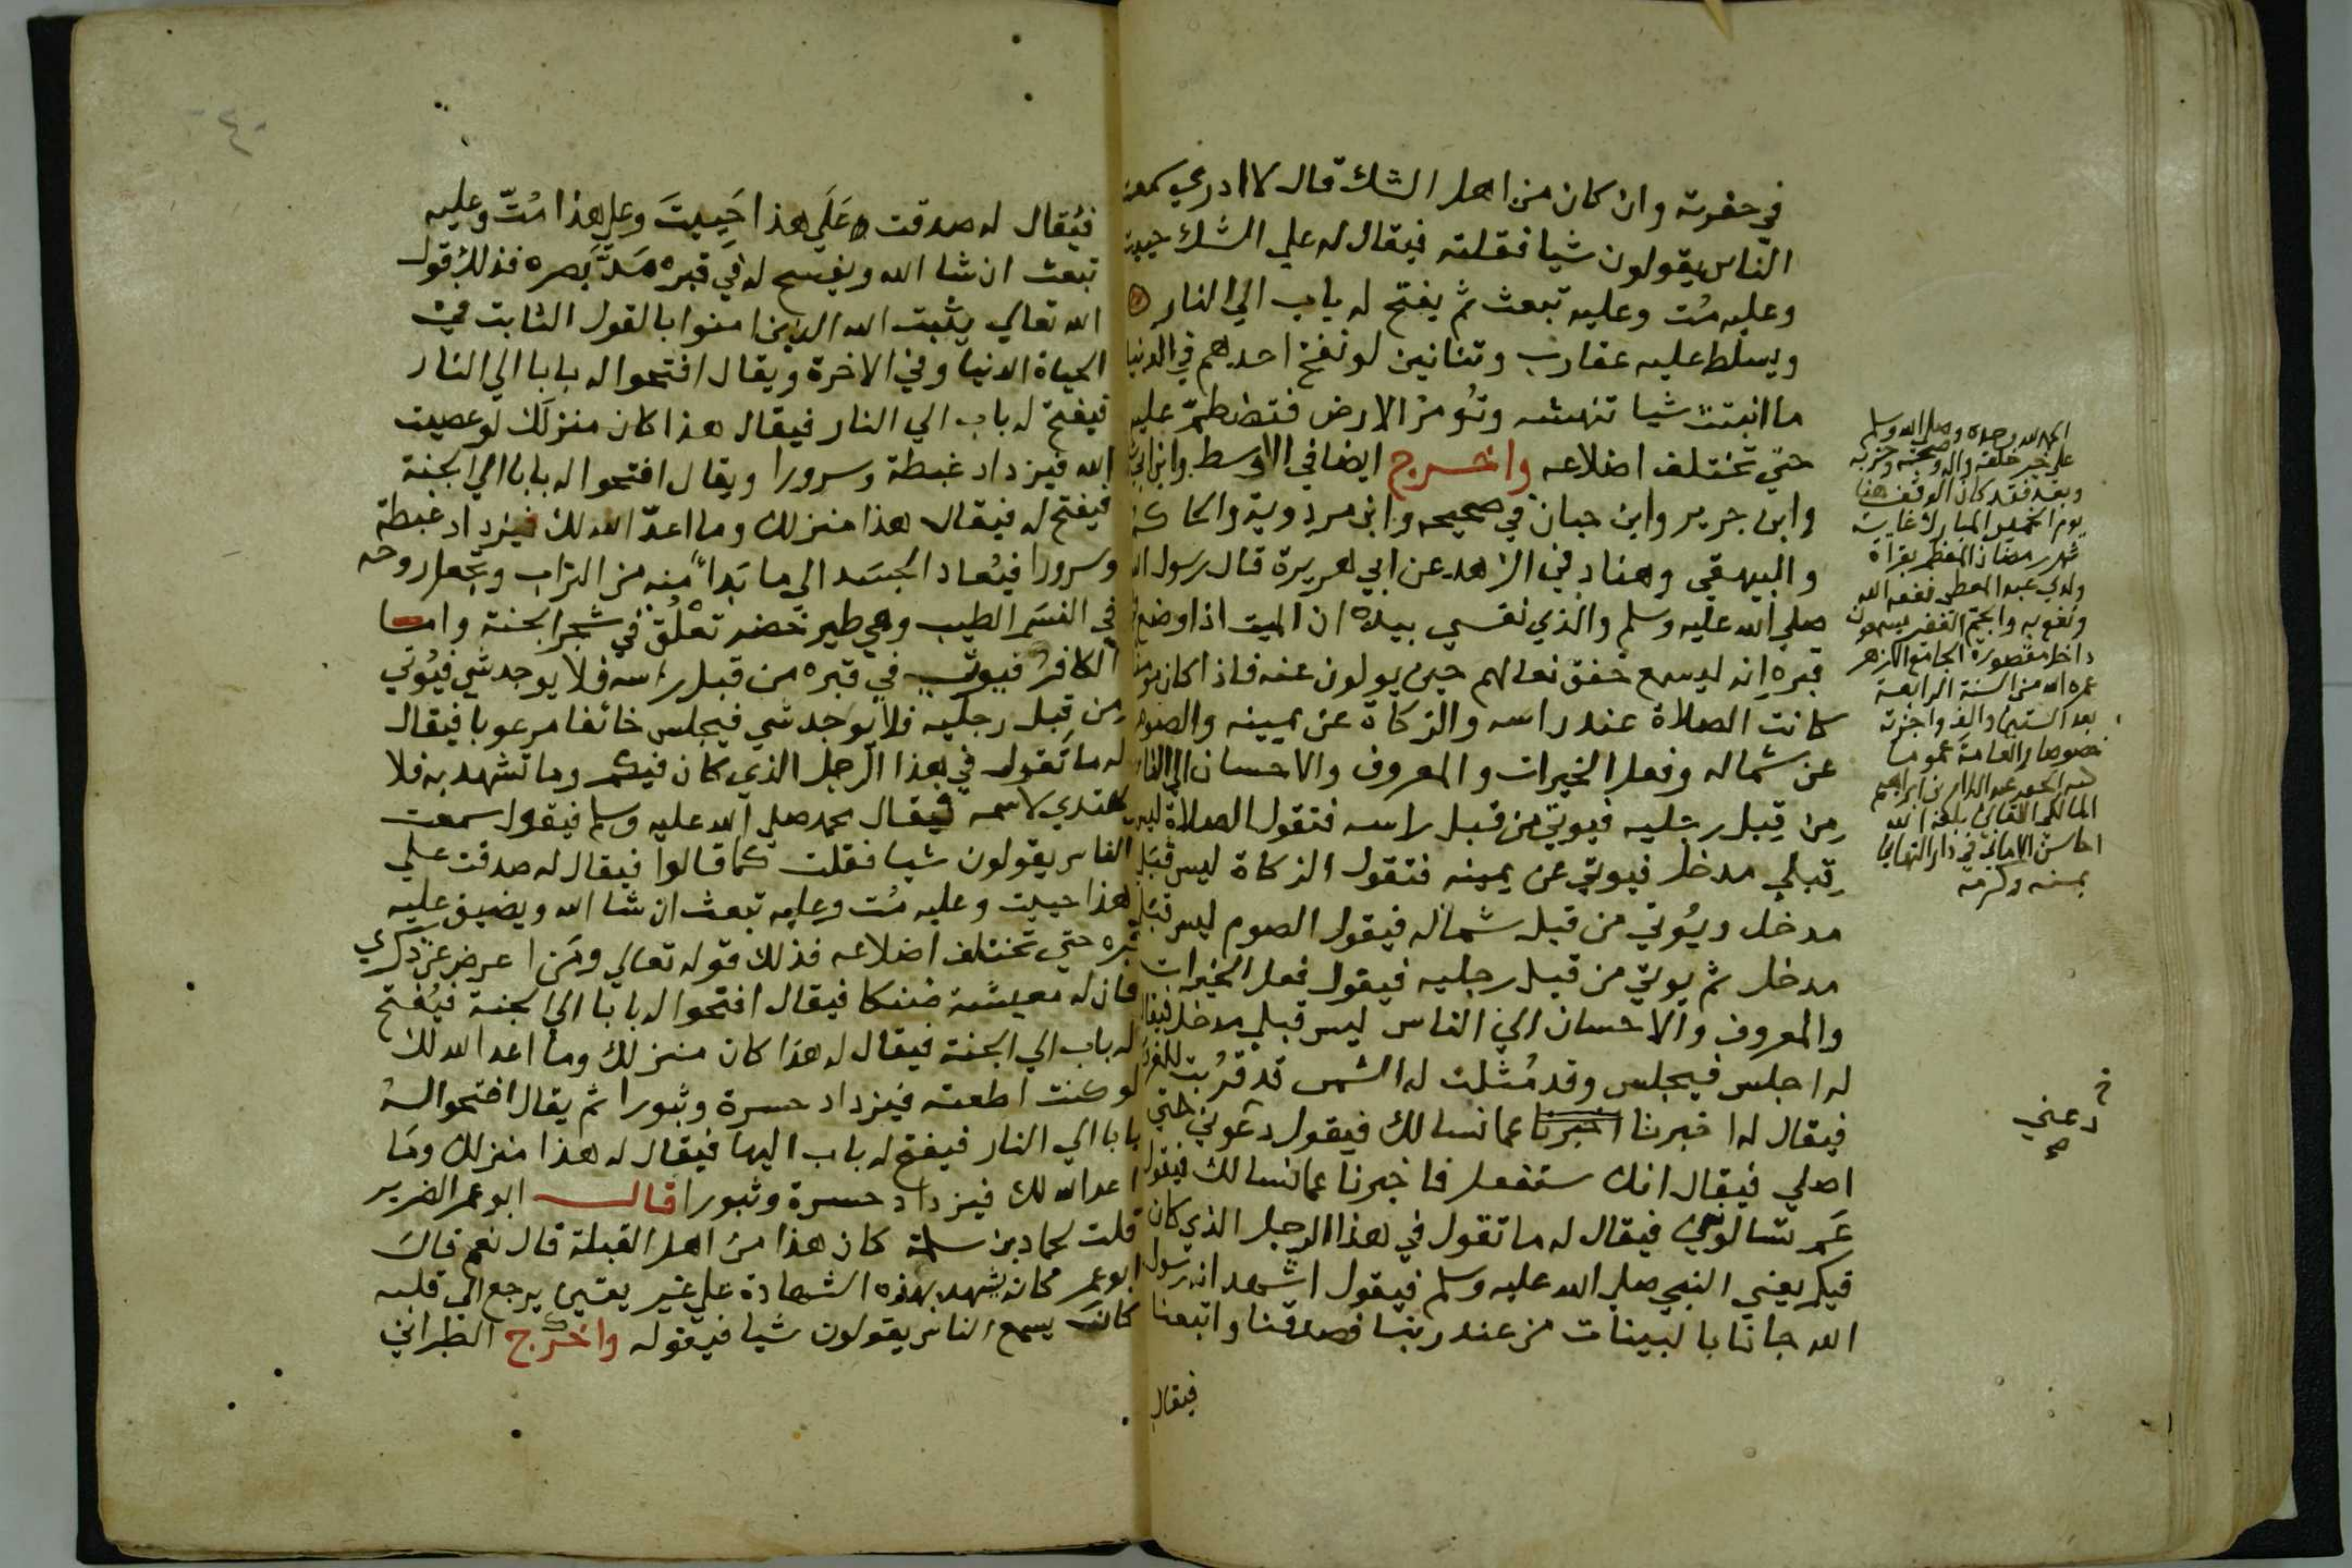 في حفرته وان كان من اهل الشك قال لا ادري سمعت
الناس يقولون شيا فقلته فيقال له علي الشك حييت
وعليه مُت وعليه تبعث ثم يفتح له باب الي النار
ويسلط عليه عقارب وتنانين لو نفخ احدهم في الدنيا
ما انبتت شيا تنهشه وتُومر الارض فتضطمّ عليه
حتي تختلف اضلاعه واخرج ايضا في الاوسط وابن ابي
وابن جرير وابن حبان في صحيحه وابن مردوية والحاكم
والبيهقي وهناد في الزهد عن ابي هريرة قال رسول الله
صلي الله عليه وسلم والذي نفسي بيده ان الميت اذا وضع في
قبره انه ليسمع خفق نعالهم حين يولون عنه فاذا كان مومنا
كانت الصلاة عند راسه والزكاة عن يمينه والصوم
عن شماله وفعل الخيرات والمعروف والاحسان الي الناس
من قبل رجليه فيوتي من قبل راسه فتقول الصلاة ليس
قبلي مدخل فيوتي عن يمينه فتقول الزكاة ليس قبلي
مدخل ويُوتي من قبل شماله فيقول الصوم ليس قبلي
مدخل ثم يوتي من قبل رجليه فيقول فعل الخيرات
والمعروف والاحسان الي الناس ليس قبلي مدخل فيقال
له اجلس فيجلس وقد مُثلت له الشمس قد قرُبت للغروب
فيقال له اخبرنا اخبرنا عما نسالك فيقول دعوني حتي
اصلي فيقال انك ستفعل فاخبرنا عما نسالك فيقول
عَم تسالوني فيقال له ما تقول في هذا الرجل الذي كان
فيكم يعني النبي صلي الله عليه وسلم فيقول اشهد انه رسول
الله جانا بالبينات من عند ربنا فصدقنا واتبعنا
فيقال
الحمد لله وحده وصلي الله وسلم
علي خير خلقه واله وصحبه وحزبه
وبعد فقد كان الوقف هنا
يوم الخميس المبارك غاية
شهر رمضان المعظم بقراة
ولدي عبد المعطي نفعه الله
ونفع به والجم الغفير يسمعون
داخل مقصورة الجامع الازهر
عمره الله من السنة الرابعة
بعد الستين والف واجزته
خصوصا والعامة عموما
كتبه الحقير عبد السلام بن ابراهيم
المالكي اللقاني بلغه الله
احاسن الاماني في دار التهاني
بمنه وكرمه
دعني
صح
٤٠
فيُقال له صدقت عَلَي هذا حَييتَ وعلي هذا مُتّ وعليه
تبعث ان شا الله ويفسح له في قبره مَدَّ بَصره فذلك قول
الله تعالي يثبت الله الذين امنوا بالقول الثابت في
الحياة الدنيا وفي الاخرة ويقال افتحوا له بابا الي النار
فيفتح له باب الي النار فيقال هذا كان منزلَك لو عصيت
الله فيزداد غبطة وسرورا ويقال افتحوا له بابا الي الجنة
فيفتح له فيقال هذا منزلك وما اعدّ الله لك فيزداد غبطة
وسرورا فيُعاد الجسَد الي ما بَدأ منه من التراب وتجعل روحه
في النسَم الطيب وهي طير خضر تعْلُق في شجر الجنة واما
الكافرُ فيوتي في قبره من قبل راسه فلا يوجد شي فيُوتي
من قبل رجليه فلا يوجد شي فيجلس خائفا مرعوبا فيقال
له ما تَقول في هذا الرجل الذي كان فيكم وما تشهد به فلا
يهتدي لاسمه فيقال محمد صلي الله عليه وسلم فيقول سمعت
الناس يقولون شيا فقلت كما قالوا فيقال له صدقت علي
هذا حييت وعليه مُت وعليه تبعث ان شا الله ويضيق عليه
قبره حتي تختلف اضلاعه فذلك قوله تعالي ومَن اعرض عن ذكري
فان له معيشة ضنكا فيقال افتحوا له بابا الي الجنة فيُفتح
له باب الي الجنة فيقال له هذا كان منزلك وما اعد الله لك
لو كنت اطعته فيزداد حسرة وثبورا ثم يقال افتحوا له
بابا الي النار فيفتح له باب اليها فيقال له هذا منزلك ومَا
اعد الله لك فيزداد حسرة وثبورا قال ابو عمر الضرير
قلت لحماد بن سلمة كان هذا من اهل القبلة قال نعم قال
ابو عمر كانه يشهد بهذه الشهادة علي غير يقين يرجع الي قلبه
كان يسمع الناس يقولون شيا فيقوله واخرج الطبراني